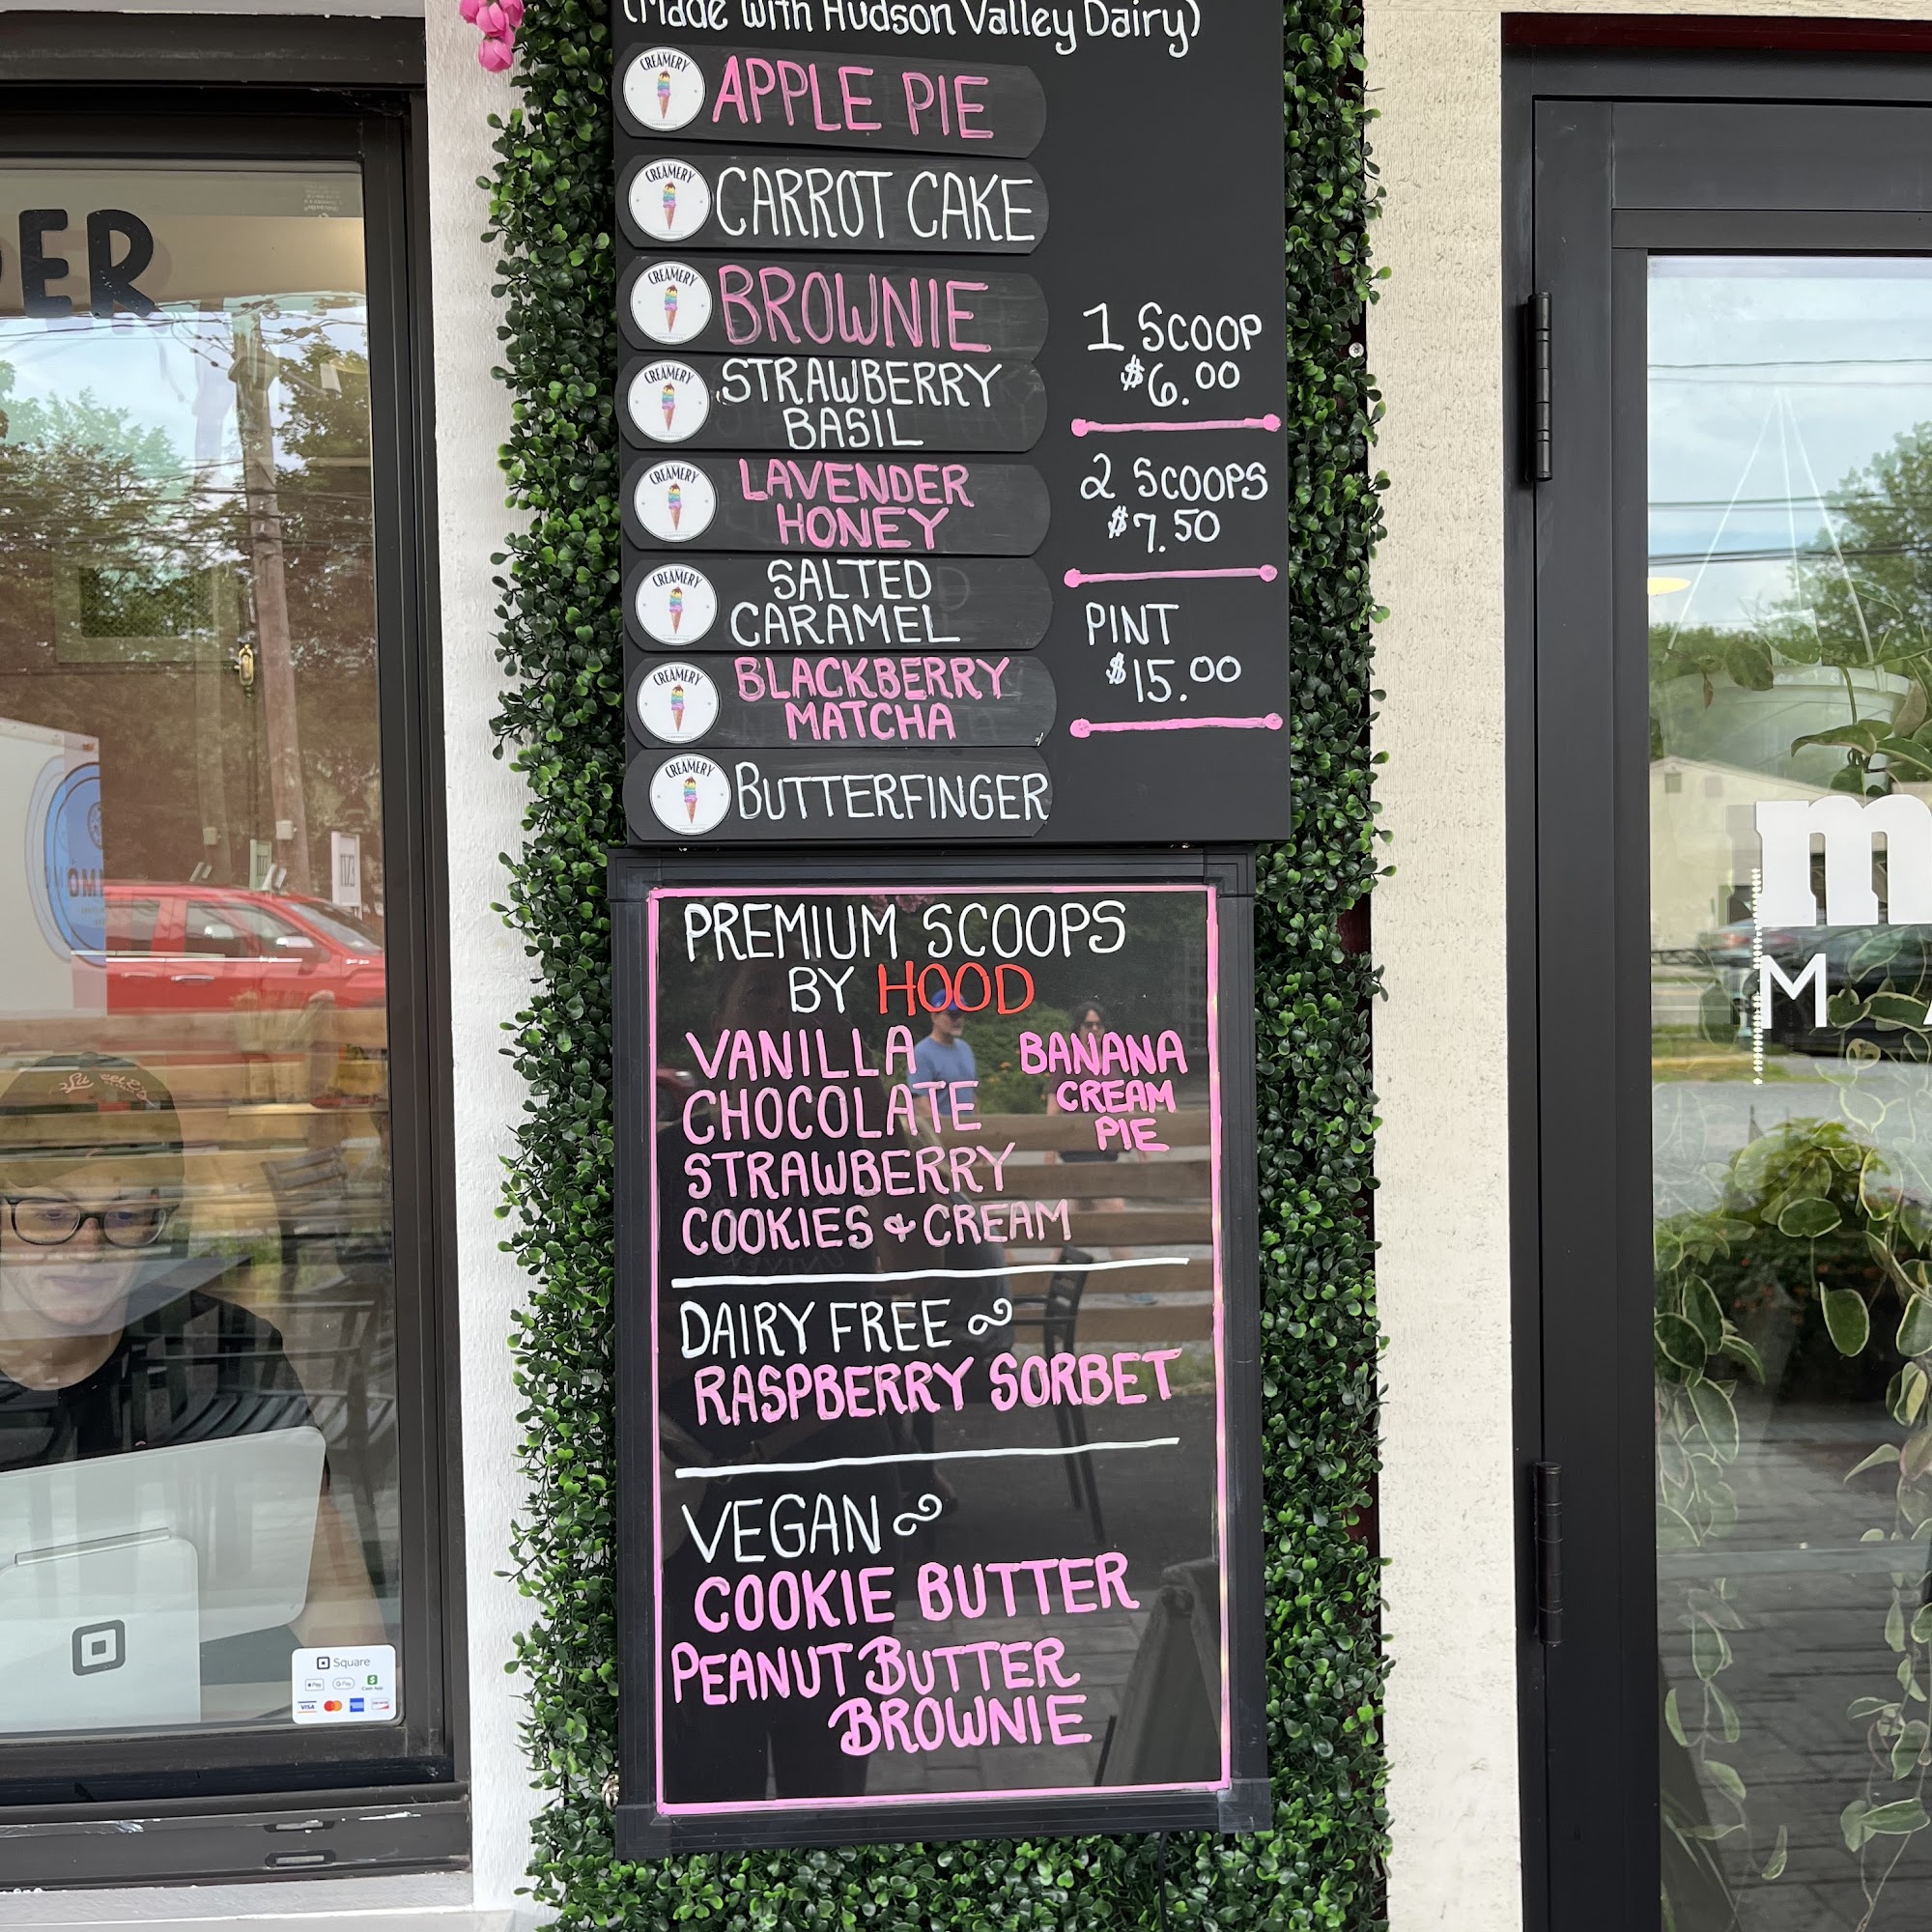 (Made with Hudson Valley Dairy)
CREAMERY
APPLE PIE
CREAMERY
CARROT CAKE
CREAMERY
BROWNIE
CREAMERY
STRAWBERRY
BASIL
CREAMERY
LAVENDER
HONEY
CREAMERY
SALTED
CARAMEL
CREAMERY
BLACKBERRY
MATCHA
CREAMERY
BUTTERFINGER
1 SCOOP
$6.00
2 SCOOPS
$7.50
PINT
$15.00
PREMIUM SCOOPS
BY HOOD
VANILLA
CHOCOLATE
STRAWBERRY
COOKIES & CREAM
BANANA
CREAM
PIE
DAIRY FREE
RASPBERRY SORBET
VEGAN
COOKIE BUTTER
PEANUT BUTTER
BROWNIE
ER
Square
Pay
G Pay
Cash App
VISA
m
M